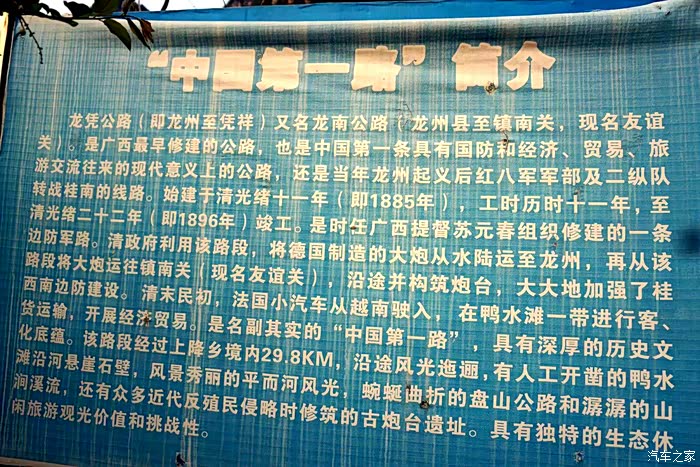 “中国第一路”简介
龙凭公路（即龙州至凭祥）又名龙南公路（龙州县至镇南关，现名友谊
关）。是广西最早修建的公路，也是中国第一条具有国防和经济、贸易、旅
游交流往来的现代意义上的公路，还是当年龙州起义后红八军军部及二纵队
转战桂南的线路。始建于清光绪十一年（即1885年），工时历时十一年，至
清光绪二十二年（即1896年）竣工。是时任广西提督苏元春组织修建的一条
边防军路。清政府利用该路段，将德国制造的大炮从水陆运至龙州，再从该
路段将大炮运往镇南关（现名友谊关），沿途并构筑炮台，大大地加强了桂
西南边防建设。清末民初，法国小汽车从越南驶入，在鸭水滩一带进行客、
货运输，开展经济贸易。是名副其实的“中国第一路”，具有深厚的历史文
化底蕴。该路段经过上降乡境内29.8KM，沿途风光迤逦，有人工开凿的鸭水
滩沿河悬崖石壁，风景秀丽的平而河风光，蜿蜒曲折的盘山公路和潺潺的山
涧溪流，还有众多近代反殖民侵略时修筑的古炮台遗址。具有独特的生态休
闲旅游观光价值和挑战性。
汽车之家